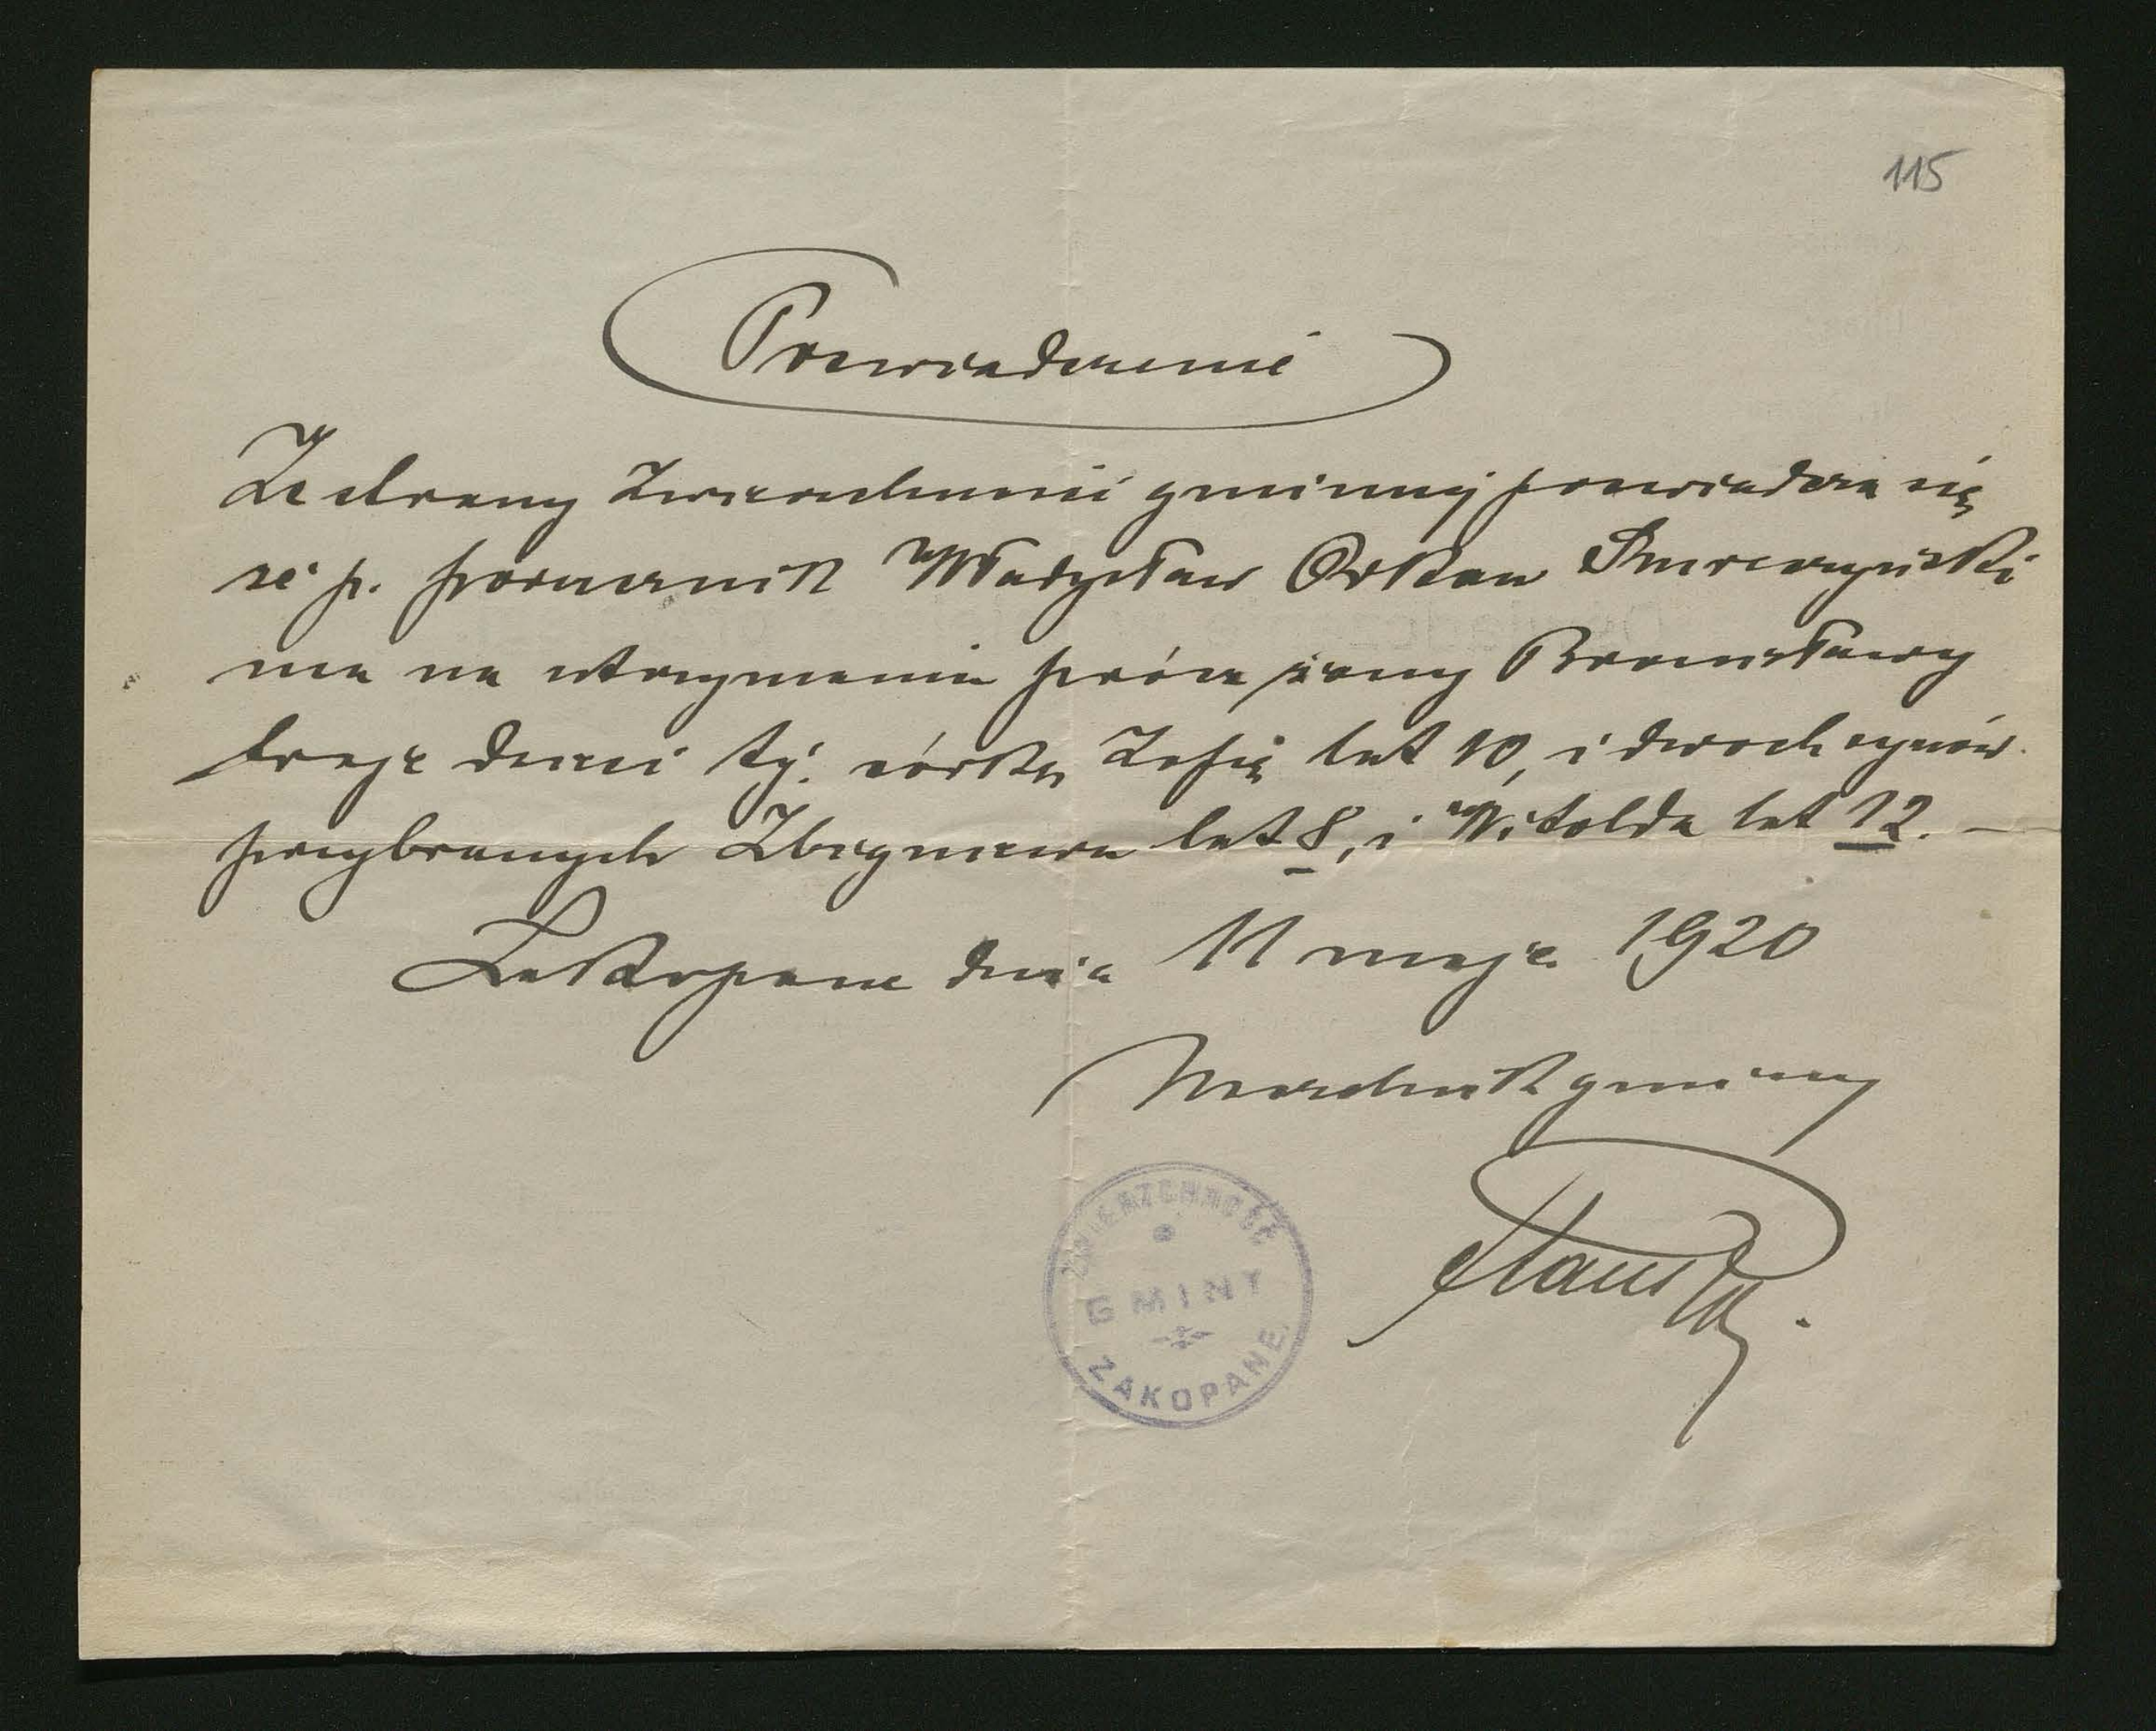 115
Poswiadczenie
Ze strony Zwierzchności gminnej poswiadcza się
że p. porucznik Władysław Orkan Smreczyński
ma na utrzymaniu prócz żony Bronisławy
troje dzieci tj. córkę Zofię lat 10, i dwoch synów
przybranych Zbigniewa lat 8, i Witolda lat 12. —
Zakopane dnia 11 maja 1920
Naczelnik gminny
ZWIERZCHNOŚĆ
GMINY
ZAKOPANE.